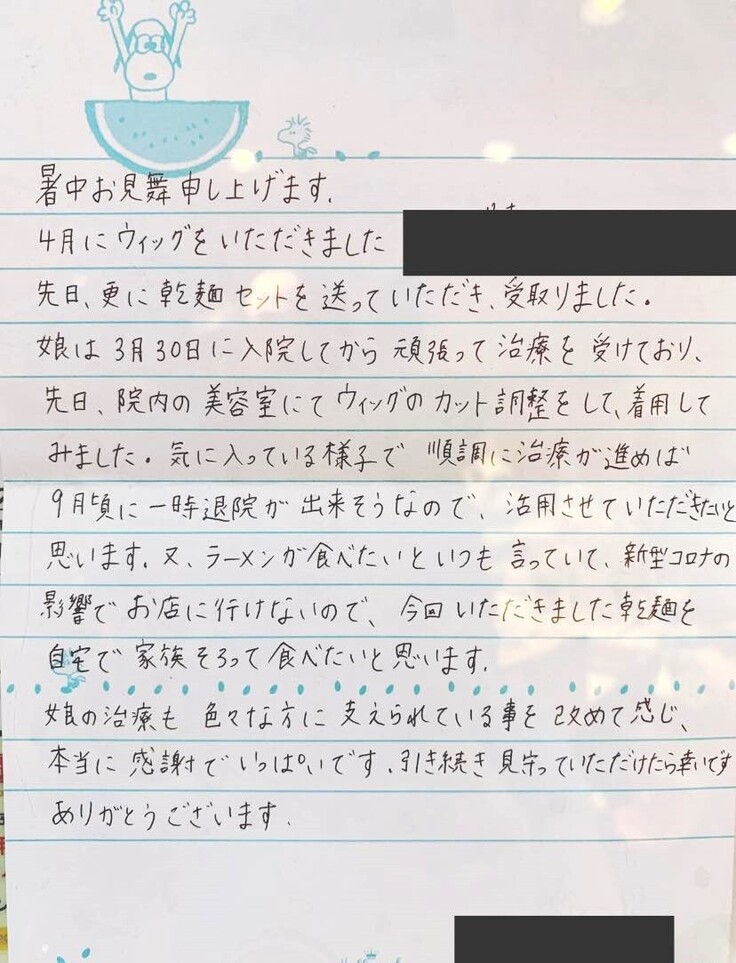 暑中お見舞申し上げます.
4月にウィッグをいただきました
先日、更に乾麺セットを送っていただき、受取りました。
娘は3月30日に入院してから頑張って治療を受けており、
先日、院内の美容室にてウィッグのカット調整をして、着用して
みました。気に入っている様子で順調に治療が進めば
9月頃に一時退院が出来そうなので、活用させていただきたいと
思います。又、ラーメンが食べたいといつも言っていて、新型コロナの
影響でお店に行けないので、今回いただきました乾麺を
自宅で家族そろって食べたいと思います.
娘の治療も色々な方に支えられている事を改めて感じ、
本当に感謝でいっぱいです.引き続き見守っていただけたら幸いです
ありがとうございます.